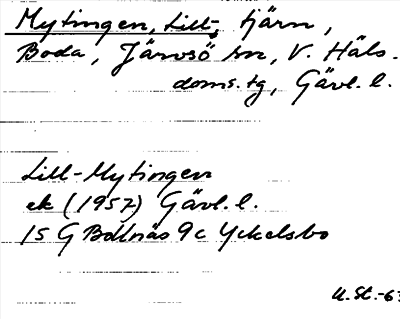 Mytingen, Lill-, tjärn,
Boda, Järvsö sn, V. Häls.
doms.tg, Gävl. l.
Lill-Mytingen
ek (1957) Gävl. l.
15 G Bollnäs 9c Yckelsbo
U. St. -63